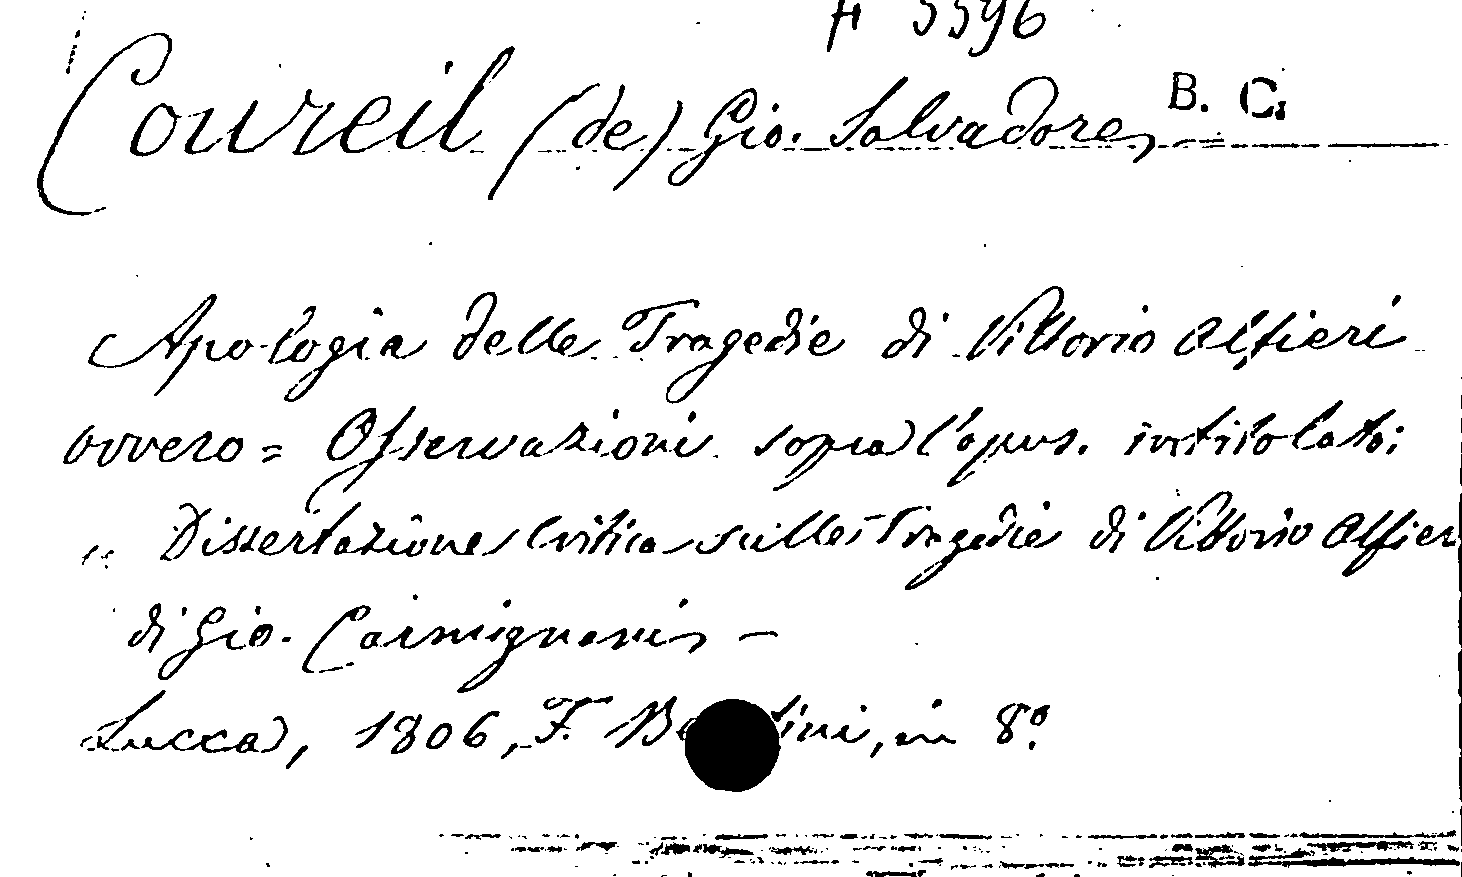 5596
Coureil (de) Gio. Salvadore, B. C.
Apologia delle Tragedie di Vittorio Alfieri
ovvero = Osservazioni sopra l'opus. intitolato:
" Dissertazione Critica sulle Tragedie di Vittorio Alfieri
di Gio. Carmignani, —
Lucca, 1806, F. in 8º.